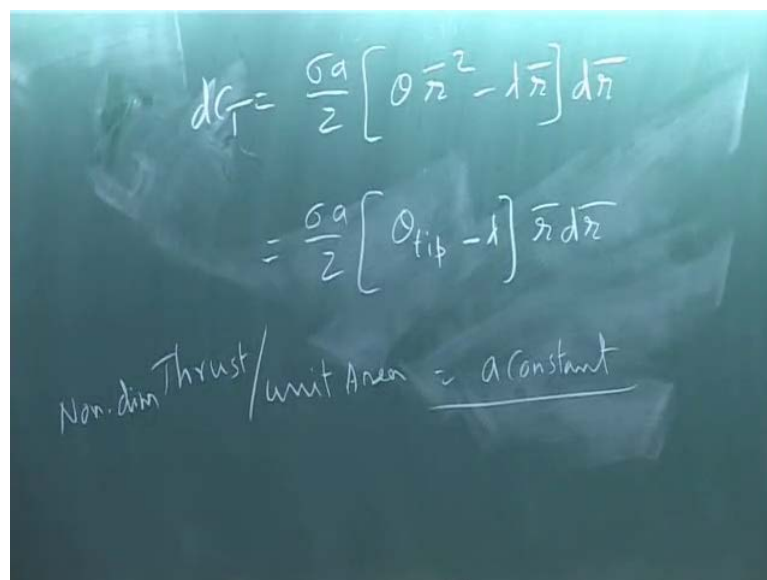 dC_T = σa/2 [ θ r̄² - λ r̄ ] d r̄
= σa/2 [ θ_tip - λ ] r̄ d r̄
Non.dim Thrust/unit Area = a constant